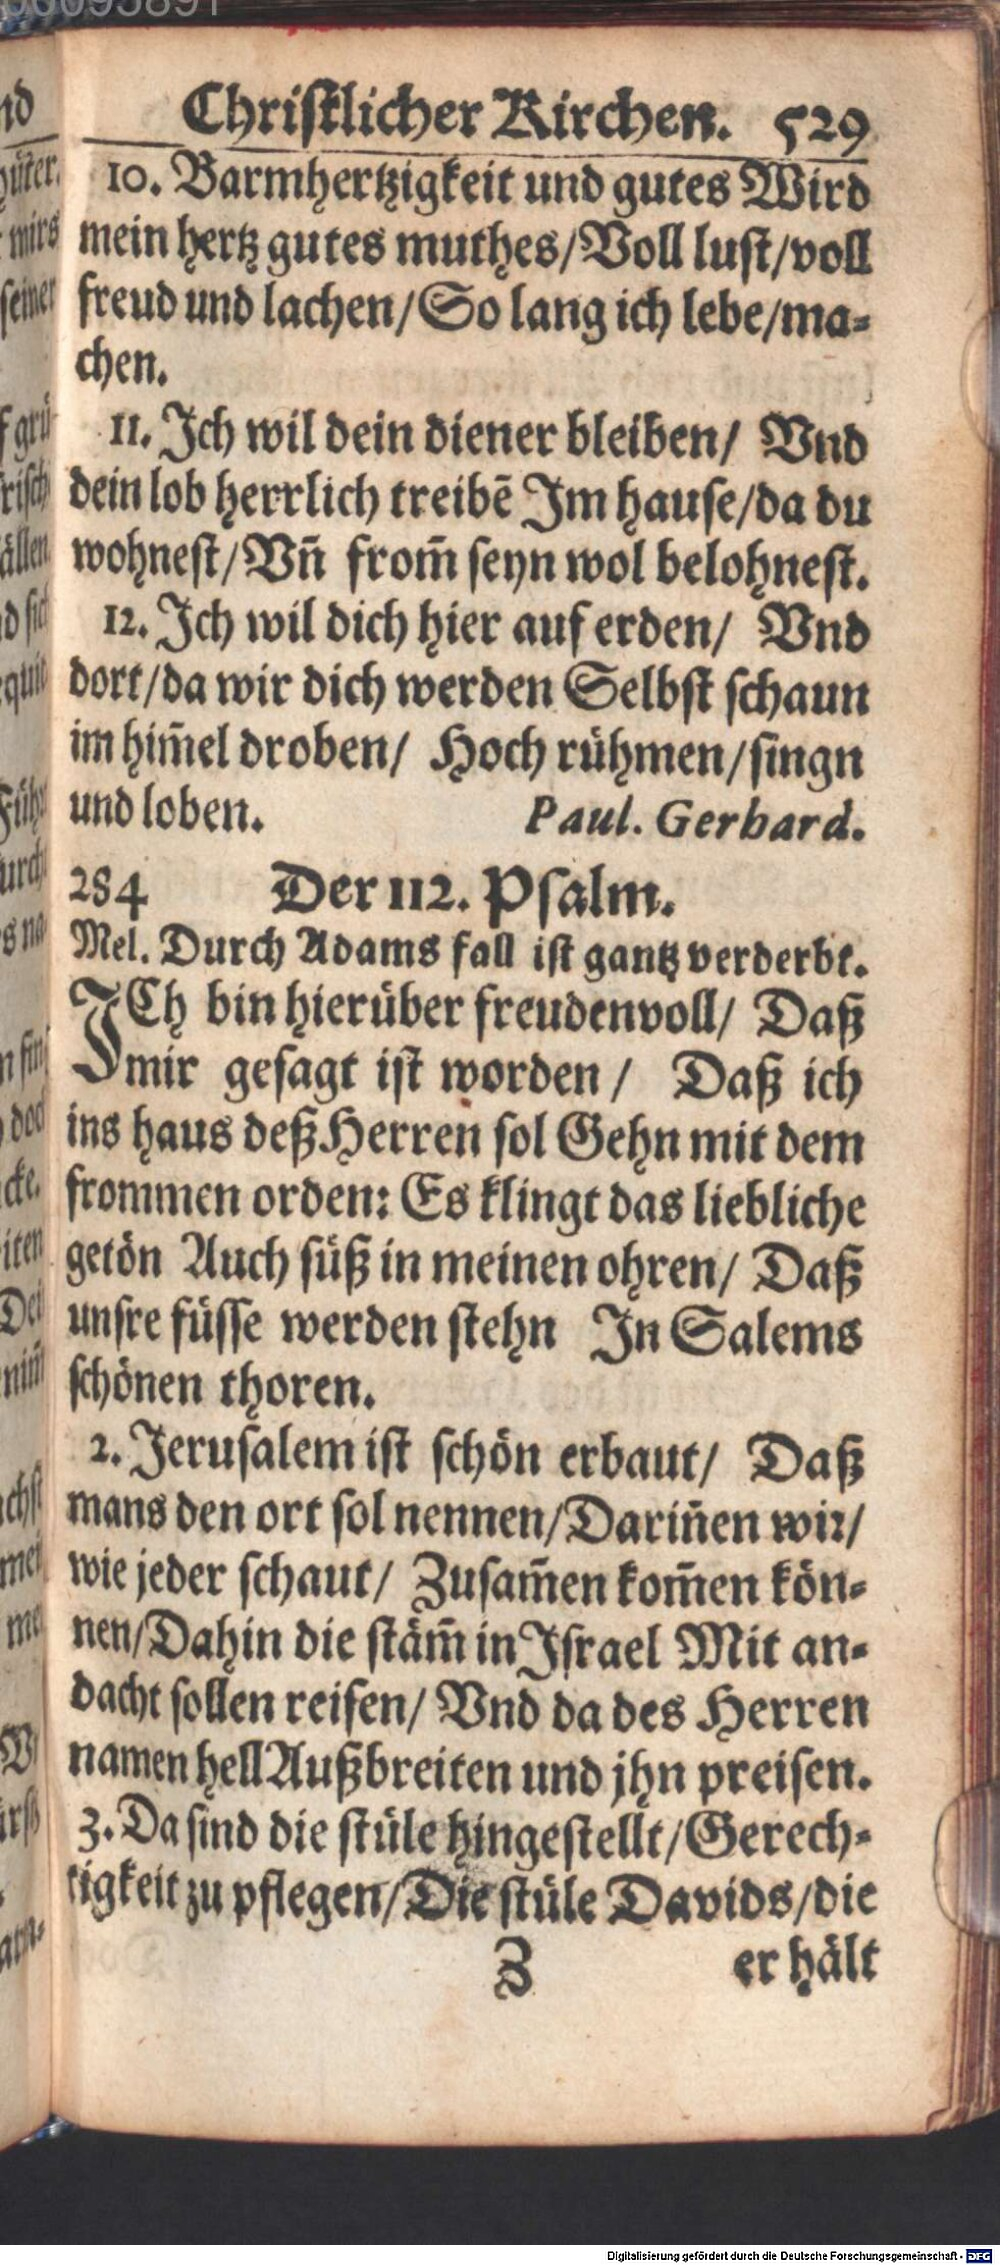 Christlicher Kirchen. 529
10. Barmhertzigkeit und gutes Wird
mein hertz gutes muthes/Voll lust/voll
freud und lachen/So lang ich lebe/ma-
chen.
11. Ich wil dein diener bleiben/ Vnd
dein lob herrlich treibẽ Im hause/da du
wohnest/Vñ from̃ seyn wol belohnest.
12. Ich wil dich hier auf erden/ Vnd
dort/da wir dich werden Selbst schaun
im him̃el droben/ Hoch rühmen/singn
und loben. Paul. Gerhard.
284 Der 112. Psalm.
Mel. Durch Adams fall ist gantz verderbt.
ICh bin hierüber freudenvoll/ Daß
mir gesagt ist worden/ Daß ich
ins haus deß Herren sol Gehn mit dem
frommen orden: Es klingt das liebliche
getön Auch süß in meinen ohren/ Daß
unsre füsse werden stehn In Salems
schönen thoren.
2. Jerusalem ist schön erbaut/ Daß
mans den ort sol nennen/Dariñen wir/
wie jeder schaut/ Zusam̃en kom̃en kön-
nen/Dahin die stäm̃ in Israel Mit an-
dacht sollen reisen/ Vnd da des Herren
namen hell Außbreiten und jhn preisen.
3. Da sind die stüle hingestellt/Gerech-
tigkeit zu pflegen/Die stüle Davids/die
Z er hält
Digitalisierung gefördert durch die Deutsche Forschungsgemeinschaft - DFG